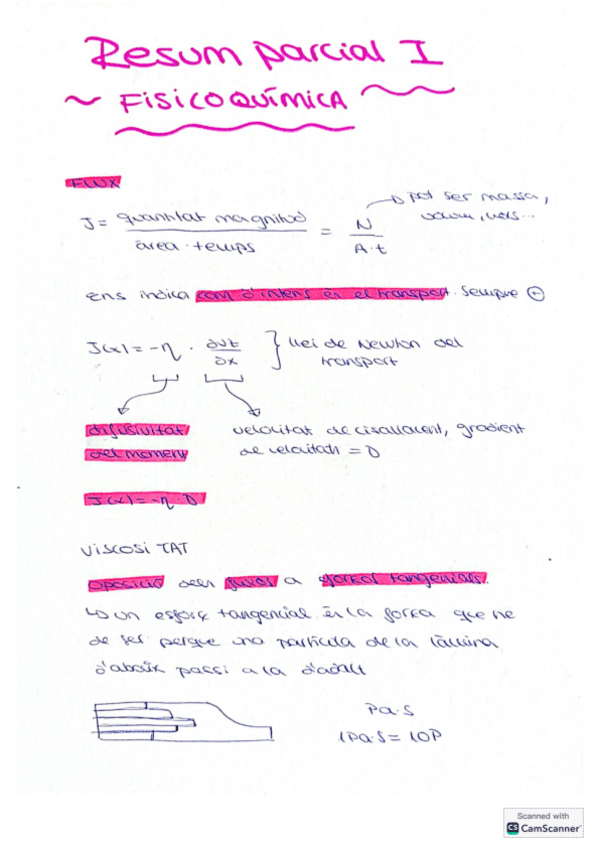 Resum parcial I
~ FISICOQUÍMICA ~
FLUX
pot ser massa,
volum, mols...
J = quantitat magnitud / àrea · temps = N / A·t
ens indica com d'intens és el transport. Sempre ⊕
J(x) = -η · ∂vt / ∂x } Llei de Newton del
transport
difusivitat
del moment
velocitat de cisallament, gradient
de velocitats = D
J(x) = -η · D
VISCOSITAT
oposició dels fluids a esforços tangencials.
↳ un esforç tangencial és la força que he
de fer perque una partícula de la làmina
d'abaix passi a la d'adalt
Pa·s
1Pa·s = 10P
Scanned with
CS CamScanner